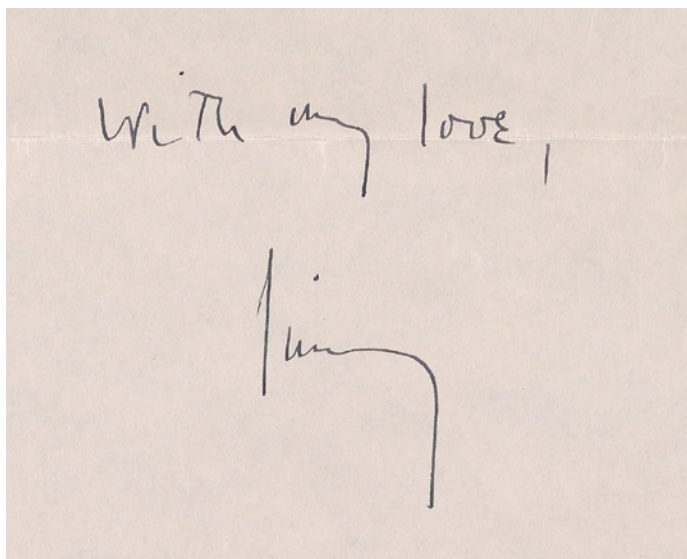 With my love,
Jimmy